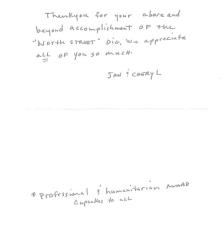 Thankyou for your above and
beyond accomplishment of the
"North Street" Dig, we appreciate
all of you so much.
Jan & Cheryl
* Professional & humanitarian award
Cupcakes to all